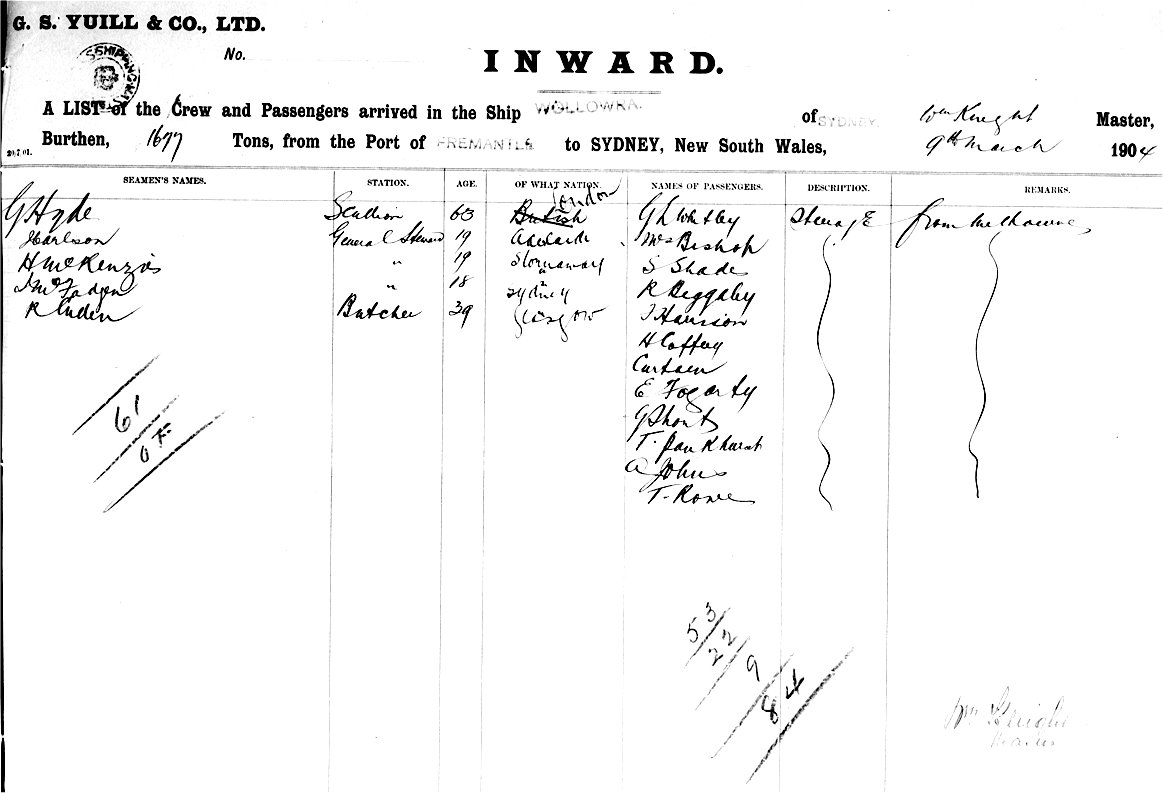 G. S. YUILL & CO., LTD.
No.
INWARD.
SHIPPING
A LIST of the Crew and Passengers arrived in the Ship WOLLOWRA. of SYDNEY. Wm Knight Master,
Burthen, 1677 Tons, from the Port of FREMANTLE to SYDNEY, New South Wales, 9th March 1904
20.7.01.
SEAMEN'S NAMES. STATION. AGE. OF WHAT NATION. NAMES OF PASSENGERS. DESCRIPTION. REMARKS.
London
G Hyde Scullion 63 British G L Whitley Steerage from Melbourne
Harlson General Steward 19 Adelaide Mrs Bishop
H McKenzie " 19 Stornaway S Shade
J McFadgen " 18 Sydney R Beggaby
R Luden Butcher 39 Glasgow J Harrison
H Caffery
Curtain
E Fogarty
G Shont
T. Pankhurst
A Johns
T. Rowe
61
53
22
9
84
Wm Knight
Master